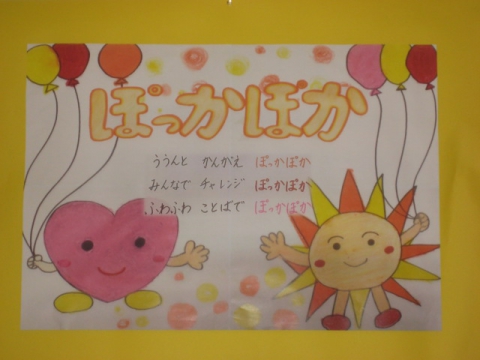 ぽっかぽか
ううんと かんがえ ぽっかぽか
みんなで チャレンジ ぽっかぽか
ふわふわ ことばで ぽっかぽか